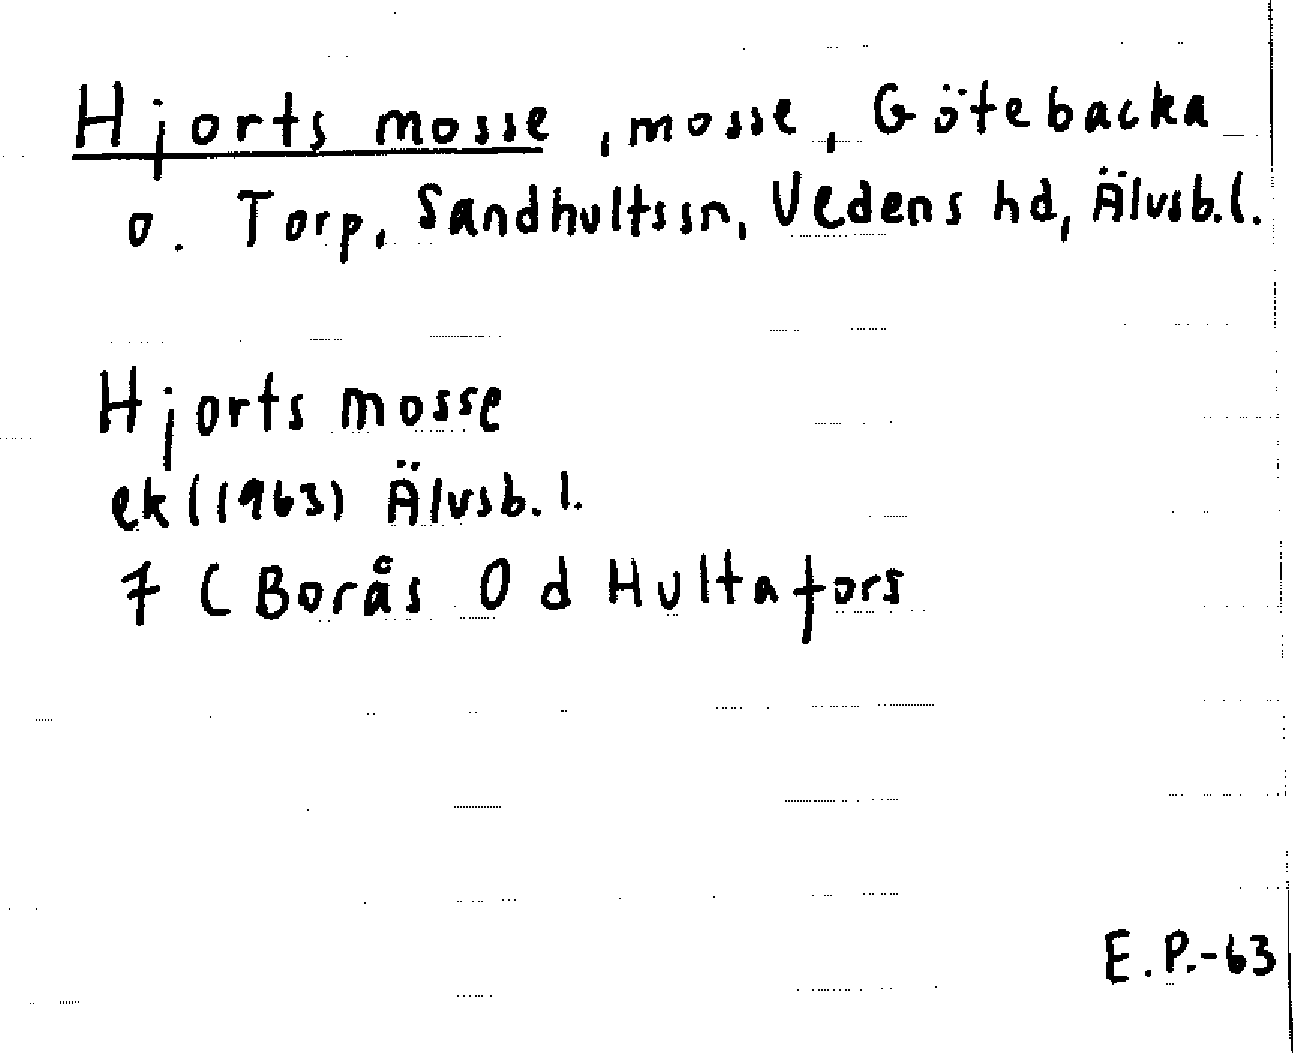 Hjorts mosse, mosse, Götebacka
o. Torp, Sandhultssn, Vedens hd, Älvsb.l.
Hjorts mosse
ek (1963) Älvsb. l.
7 C Borås 0 d Hultafors
E.P.-63